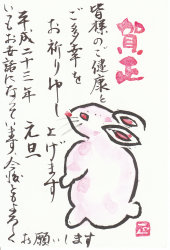 賀正
皆様のご健康と
ご多幸を
お祈り申し
上げます
平成二十三年 元旦
いつもお世話になっています。今後ともよろしく
お願いします